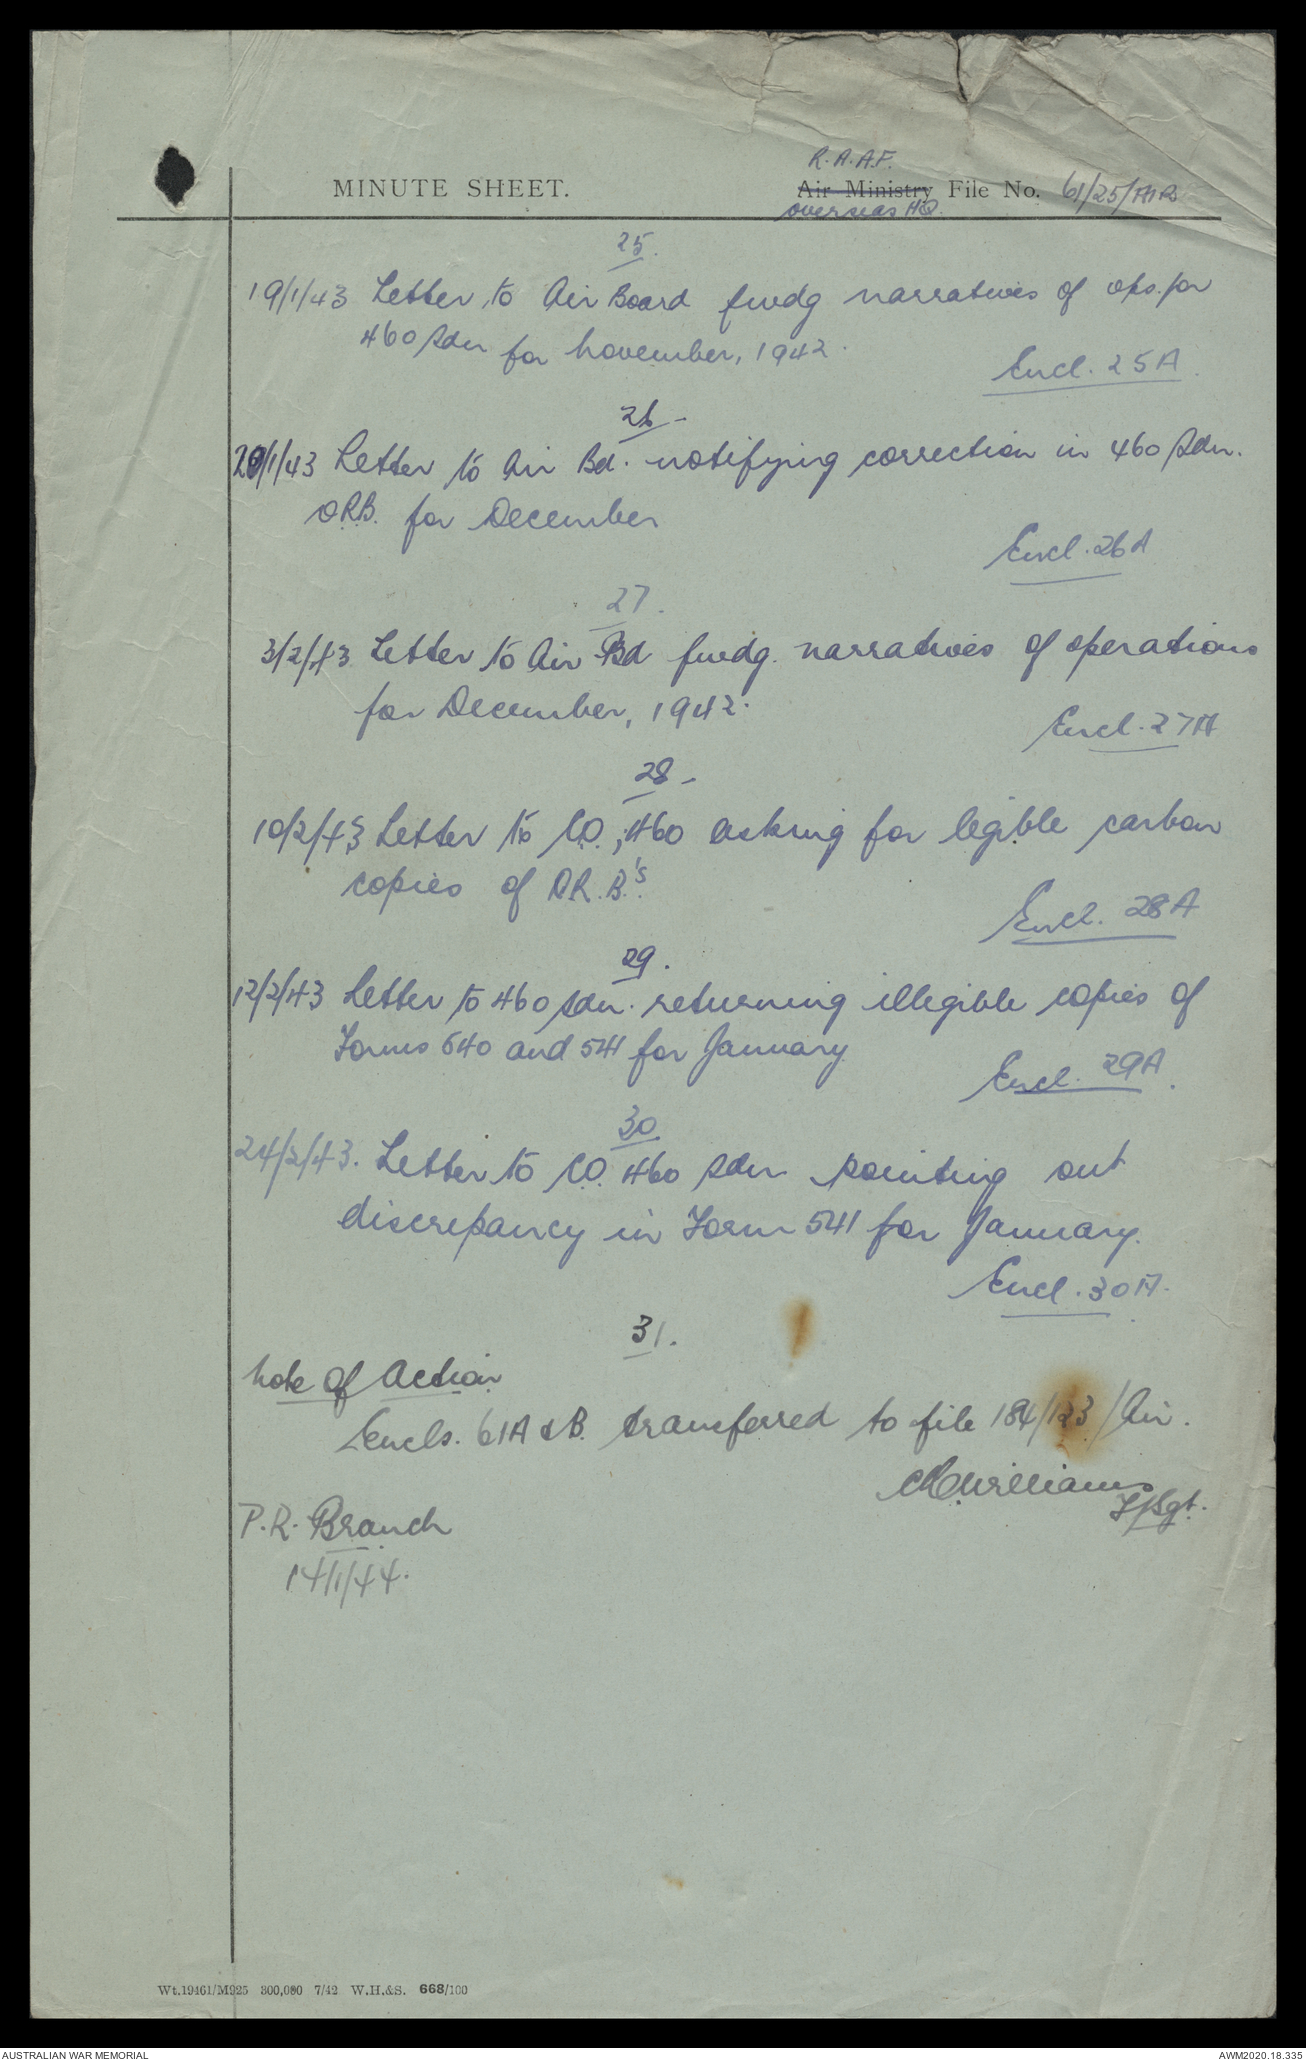 R.A.A.F.
MINUTE SHEET. Air Ministry File No. 61/25/AIR
overseas HQ.
25.
19/1/43 Letter to Air Board fwdg narratives of ops. for
460 Sdn for November, 1942.
Encl. 25A.
26
29/1/43 Letter to Air Bd. notifying correction in 460 Sdn.
ORB. for December
Encl. 26A
27.
3/2/43 Letter to Air Bd fwdg. narratives of operations
for December, 1942.
Encl. 27A
28
10/2/43 Letter to C.O., 460 asking for legible carbon
copies of O.R.B.'s.
Encl. 28A
29.
12/2/43 Letter to 460 Sdn. returning illegible copies of
Forms 540 and 541 for January
Encl. 29A.
30
24/2/43. Letter to C.O. 460 Sdn pointing out
discrepancy in Form 541 for January.
Encl. 30A.
31.
Note of Action
Encls. 61A & B. transferred to file 184/123/Air.
Williams
F/Sgt.
P.R. Branch
14/1/44.
Wt.19461/M925 300,000 7/42 W.H.&S. 668/100
AUSTRALIAN WAR MEMORIAL AWM2020.18.335